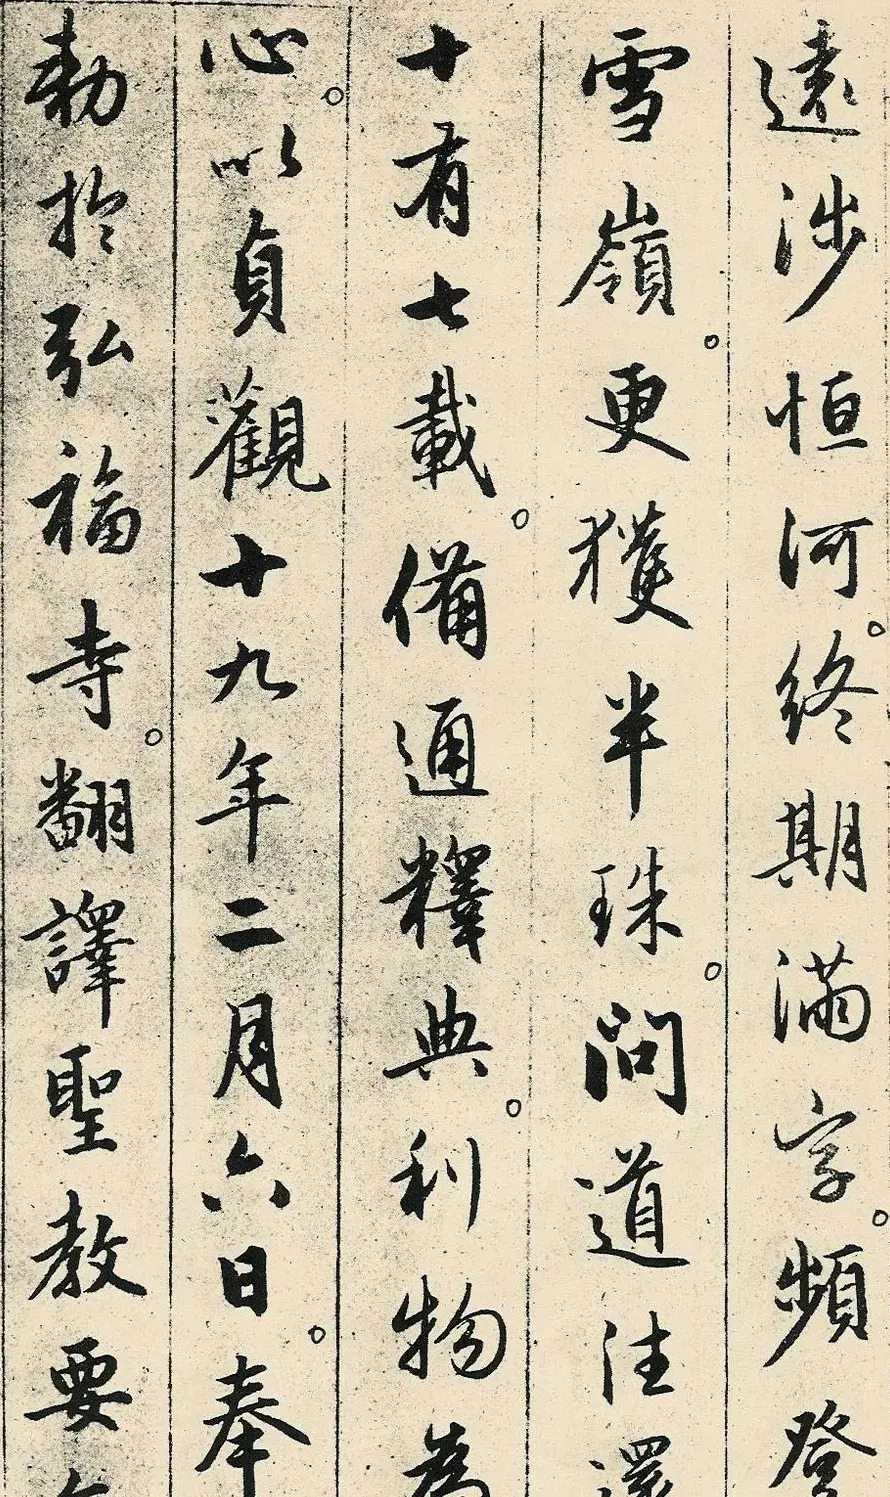 遠涉恒河。終期滿字。頻登
雪嶺。更獲半珠。問道往還
十有七載。備通釋典。利物為
心。以貞觀十九年二月六日。奉
勅於弘福寺。翻譯聖教要